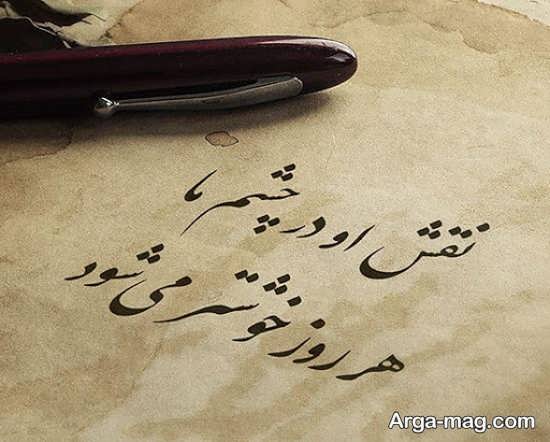 نقش او در چشم ما
هر روز خوشتر می شود
Arga-mag.com